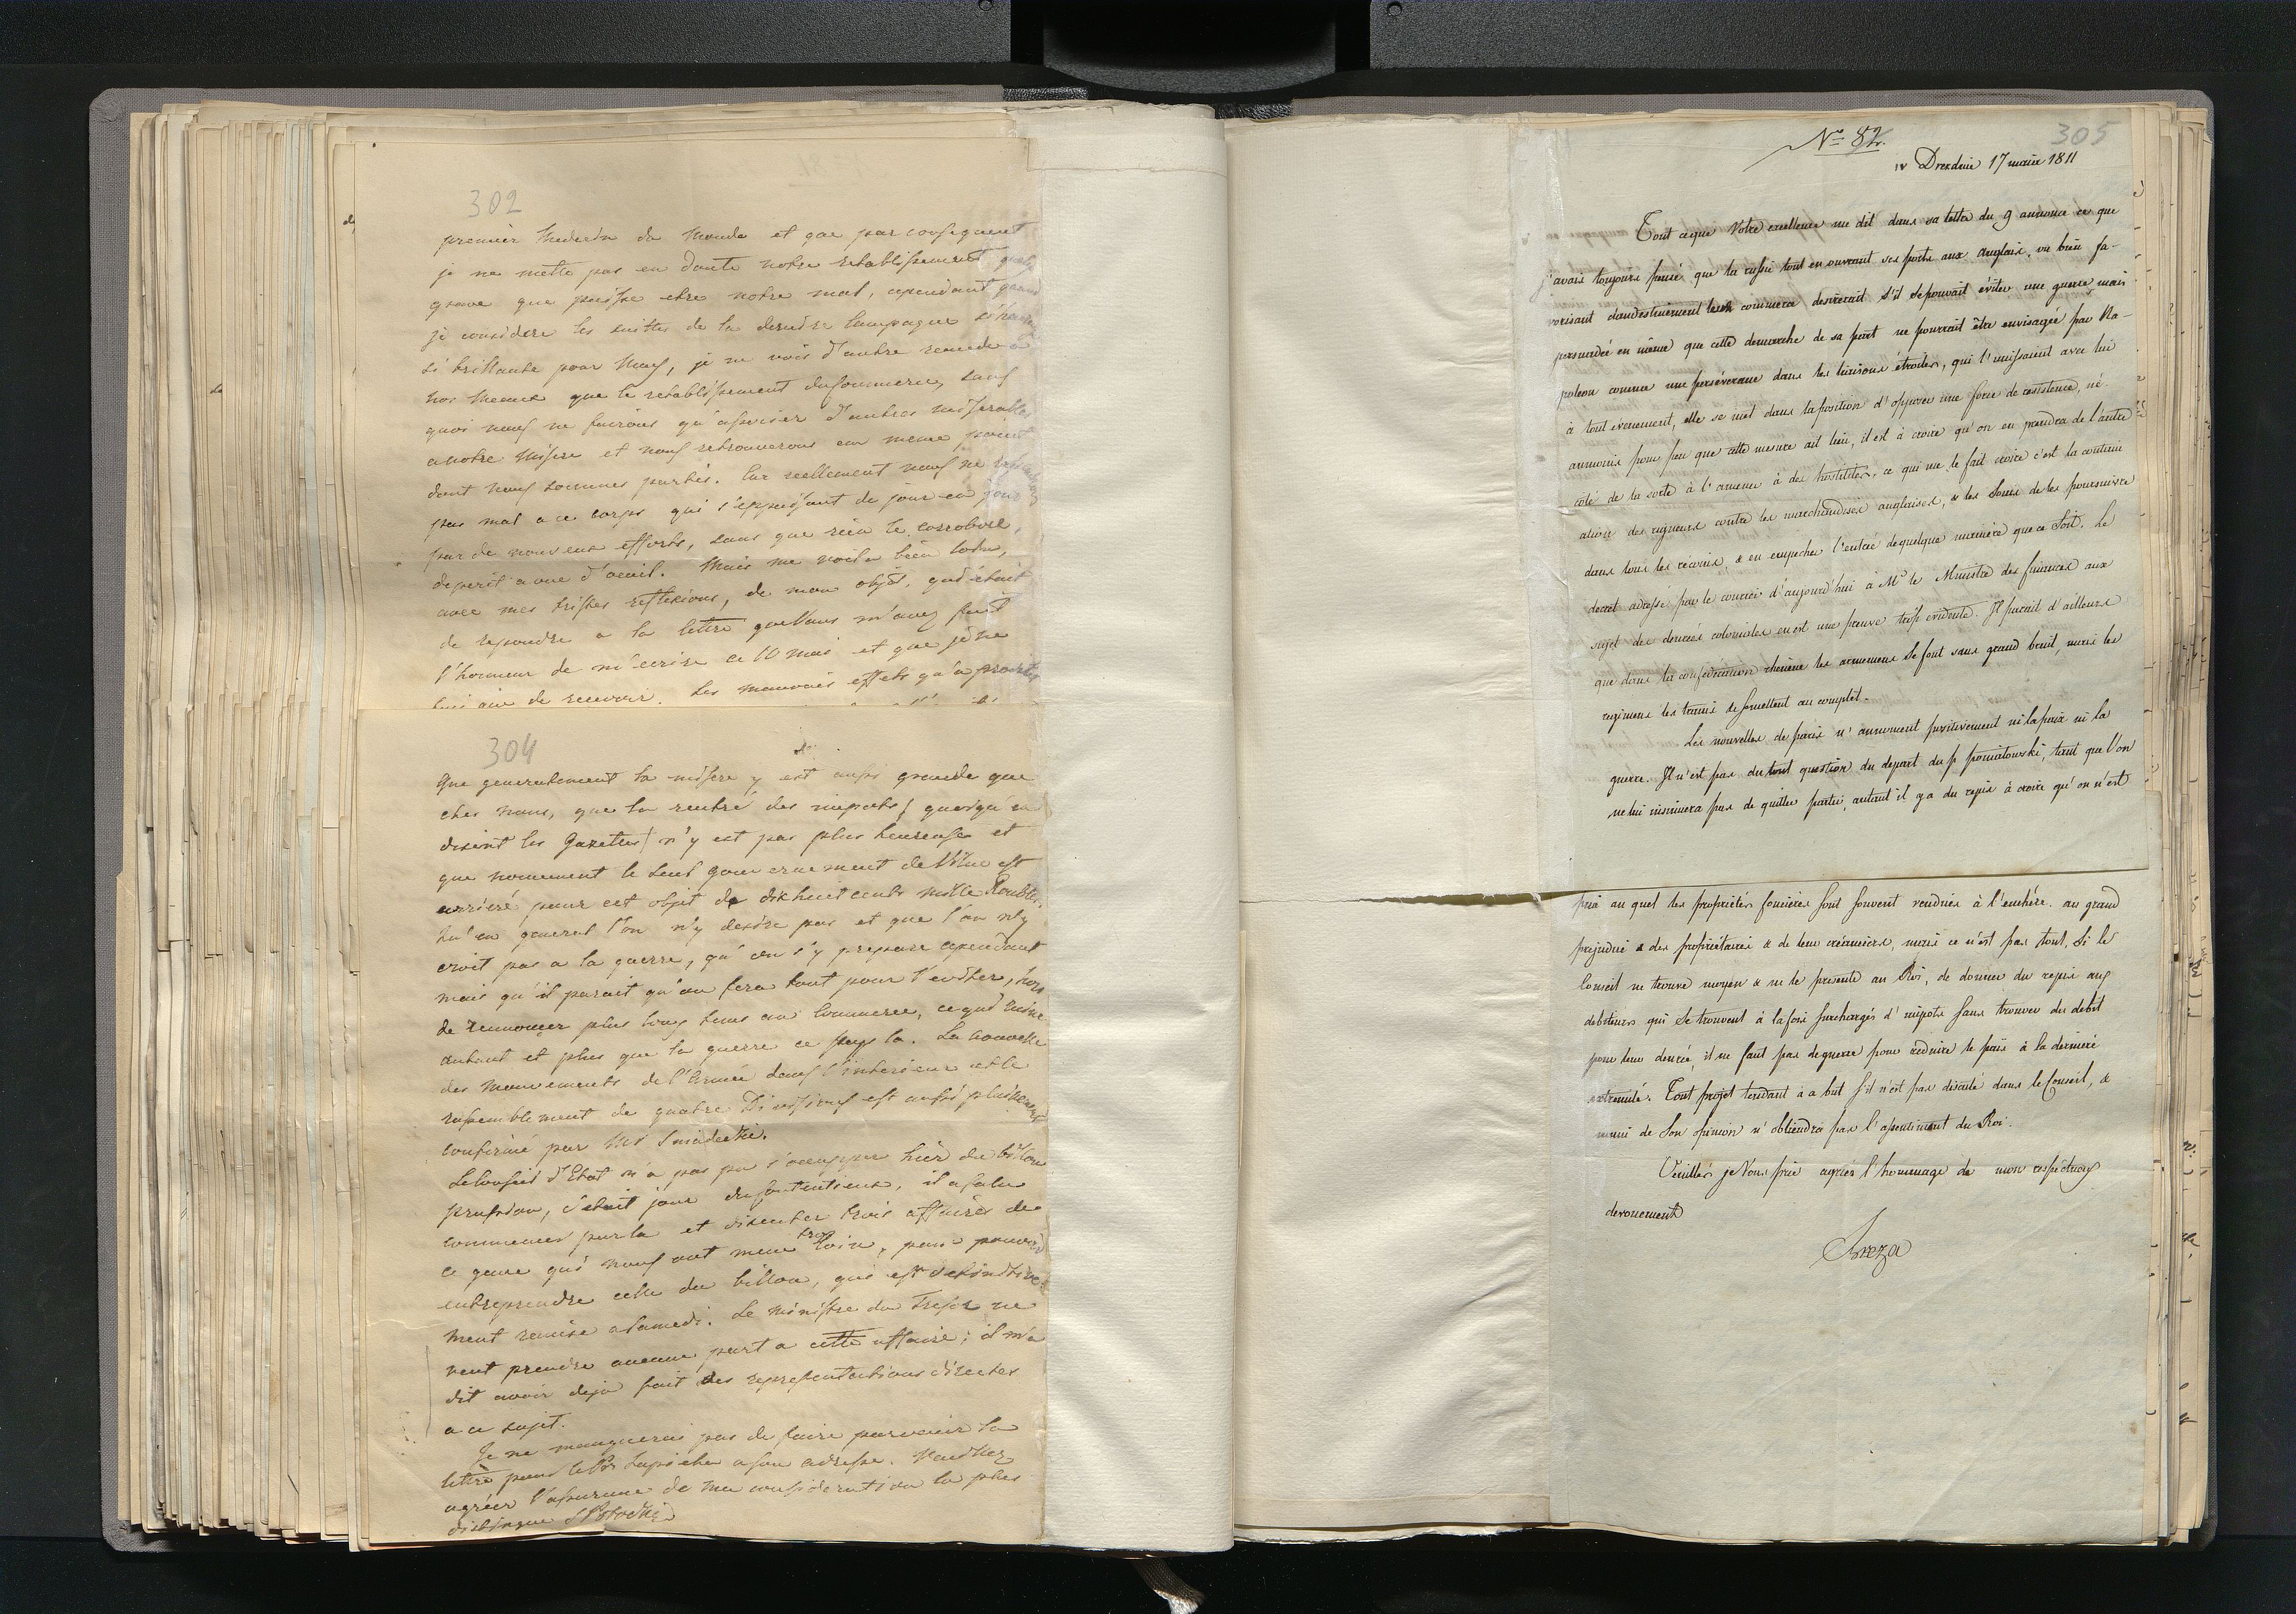 302
premier Medecin du Monde et que par consequent
je ne mette pas en doute notre retablissement
grave que puisse etre notre mal, cependant quand
je considere les suittes de la derniere Campagne
si brillante pour Nous, je ne vois d'autre remede a
nos Meaux que le retablissement du Commerce, sans
quoi nous ne fairons qu'associer d'autres miserables
a notre Misere et nous retrouverons au meme point
dont nous sommes partis. Car reellement nous ne
pas mal a ce corps qui s'eppuisant de jour en jour
par de nouveaux efforts, sans que rien le corrobore,
deperit a vue d'oeuil. Mais me voila bien loin,
avec mes tristes reflexions, de mon objet, qui était
de repondre a la lettre que Vous m'avez fait
l'honneur de m'ecrire ce 10 Mai et que je ne
de recevoir. Les mauvais effets qu'a
304
Que generalement la misere y est aussi grande que
ches nous, que la rentré des impots (quoiqu'en
disent les Gazettes) n'y est pas plus heureuse et
que nomement le seul gouvernement de Vilno est
arrieré pour cet objet de dixhuit cents mille Roubles.
Qu'en general l'on n'y desire pas et que l'on n'y
croit pas a la guerre, qu'on s'y prepare cependant
mais qu'il parait qu'on fera tout pour l'eviter, hors
de renoncer plus long tems au Commerce, ce qui ruine
autant et plus que la guerre ce pays la. La nouvelle
des mouvements de l'Armée dans l'interieur et le
rassemblement de quatre Divisions est aussi pleinement
confirmé par Mr Sniadecki.
Le Conseil d'Etat n'a pas pu s'occupper hier du billon
prussien, c'etait jour du Contentieux, il a falu
commencer par la et discuter trois affaires de
ce genre qui nous ont mené trop loin, pour pouvoir
entreprendre celle du billon, qui est definitive-
ment remise a Samedi. Le Ministre du Tresor ne
veut prendre aucune part a cette affaire; il m'a
dit avoir deja fait des representations directes
a ce sujet.
Je ne manquerai pas de faire parvenir la
lettre pour le a son adresse. Veuillez
agréer l'assurance de ma consideration la plus
distingue
305
No 82.
Dresden 17 mai 1811
Tout ce que Votre excellence me dit dans sa lettre du 9 annonce ce que
j'avais toujours pensé que la russie tout en ouvrant ses ports aux anglais, ou bien fa-
vorisant clandestinement leur commerce desirerait s'il se pouvait éviter une guerre, mais
persuadée en même que cette demarche de sa part ne pourrait être envisagée par Na-
poleon comme une perséverance dans les liaisons étroites, qui l'unissaient avec lui
à tout evenement, elle se met dans la position d'opposer une force de resistence, né-
anmoins pour peu que cette mesure ait lieu, il est à croire qu'on en prendra de l'autre
coté de la sorte à l'amener à des hostilités, ce qui me le fait croire c'est la continu
ation des rigueurs contre les marchandises anglaises, & les soins de les poursuivre
dans tous les recoins, & en empecher l'entrée de quelque maniere que ce soit. Le
decret adressé par le courrier d'aujourd'hui à Mr le Ministre des finances aux
sujet des denrées coloniales en est une preuve trop evidente. Il parait d'ailleurs
que dans la confederation rhenane les armemens se font sans grand bruit, mais les
regimens les trains se se mettent au complet.
Les nouvelles de paris n'annoncent positivement ni la paix ni la
guerre. Il n'est pas du tout question du depart du p poniatowski, tant que l'on
ne lui insinuera pas de quitter partir, autant il y a du repis à croire qu'on n'est
prix au quel les proprietés foncieres sont souvent vendues à l'enchére. au grand
prejudice & des proprietaires & de leur créanciers, mais ce n'est pas tout, si le
Conseil ne trouve moyen & ne le presente au Roi, de donner du repis aux
debiteurs qui se trouvent à la fois surchargés d'impots sans trouver du debit
pour leur denrée, il ne faut pas de guerre pour reduire le païs à la derniere
extremité. Tout projet tendant à a but s'il n'est pas discuté dans le Conseil, &
muni de son opinion n'obtiendra pas l'assentiment du Roi.
Veuilles je Vous prie agréer l'hommage de mon respectueux
devouement
Breza